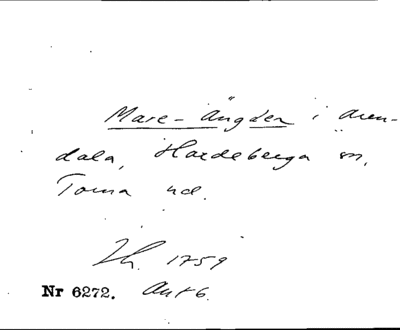 Mare-Ängden i Aren-
dala, Hardeberga sn,
Torna hd.
Lh. 1759
Nr 6272. Akt 6.